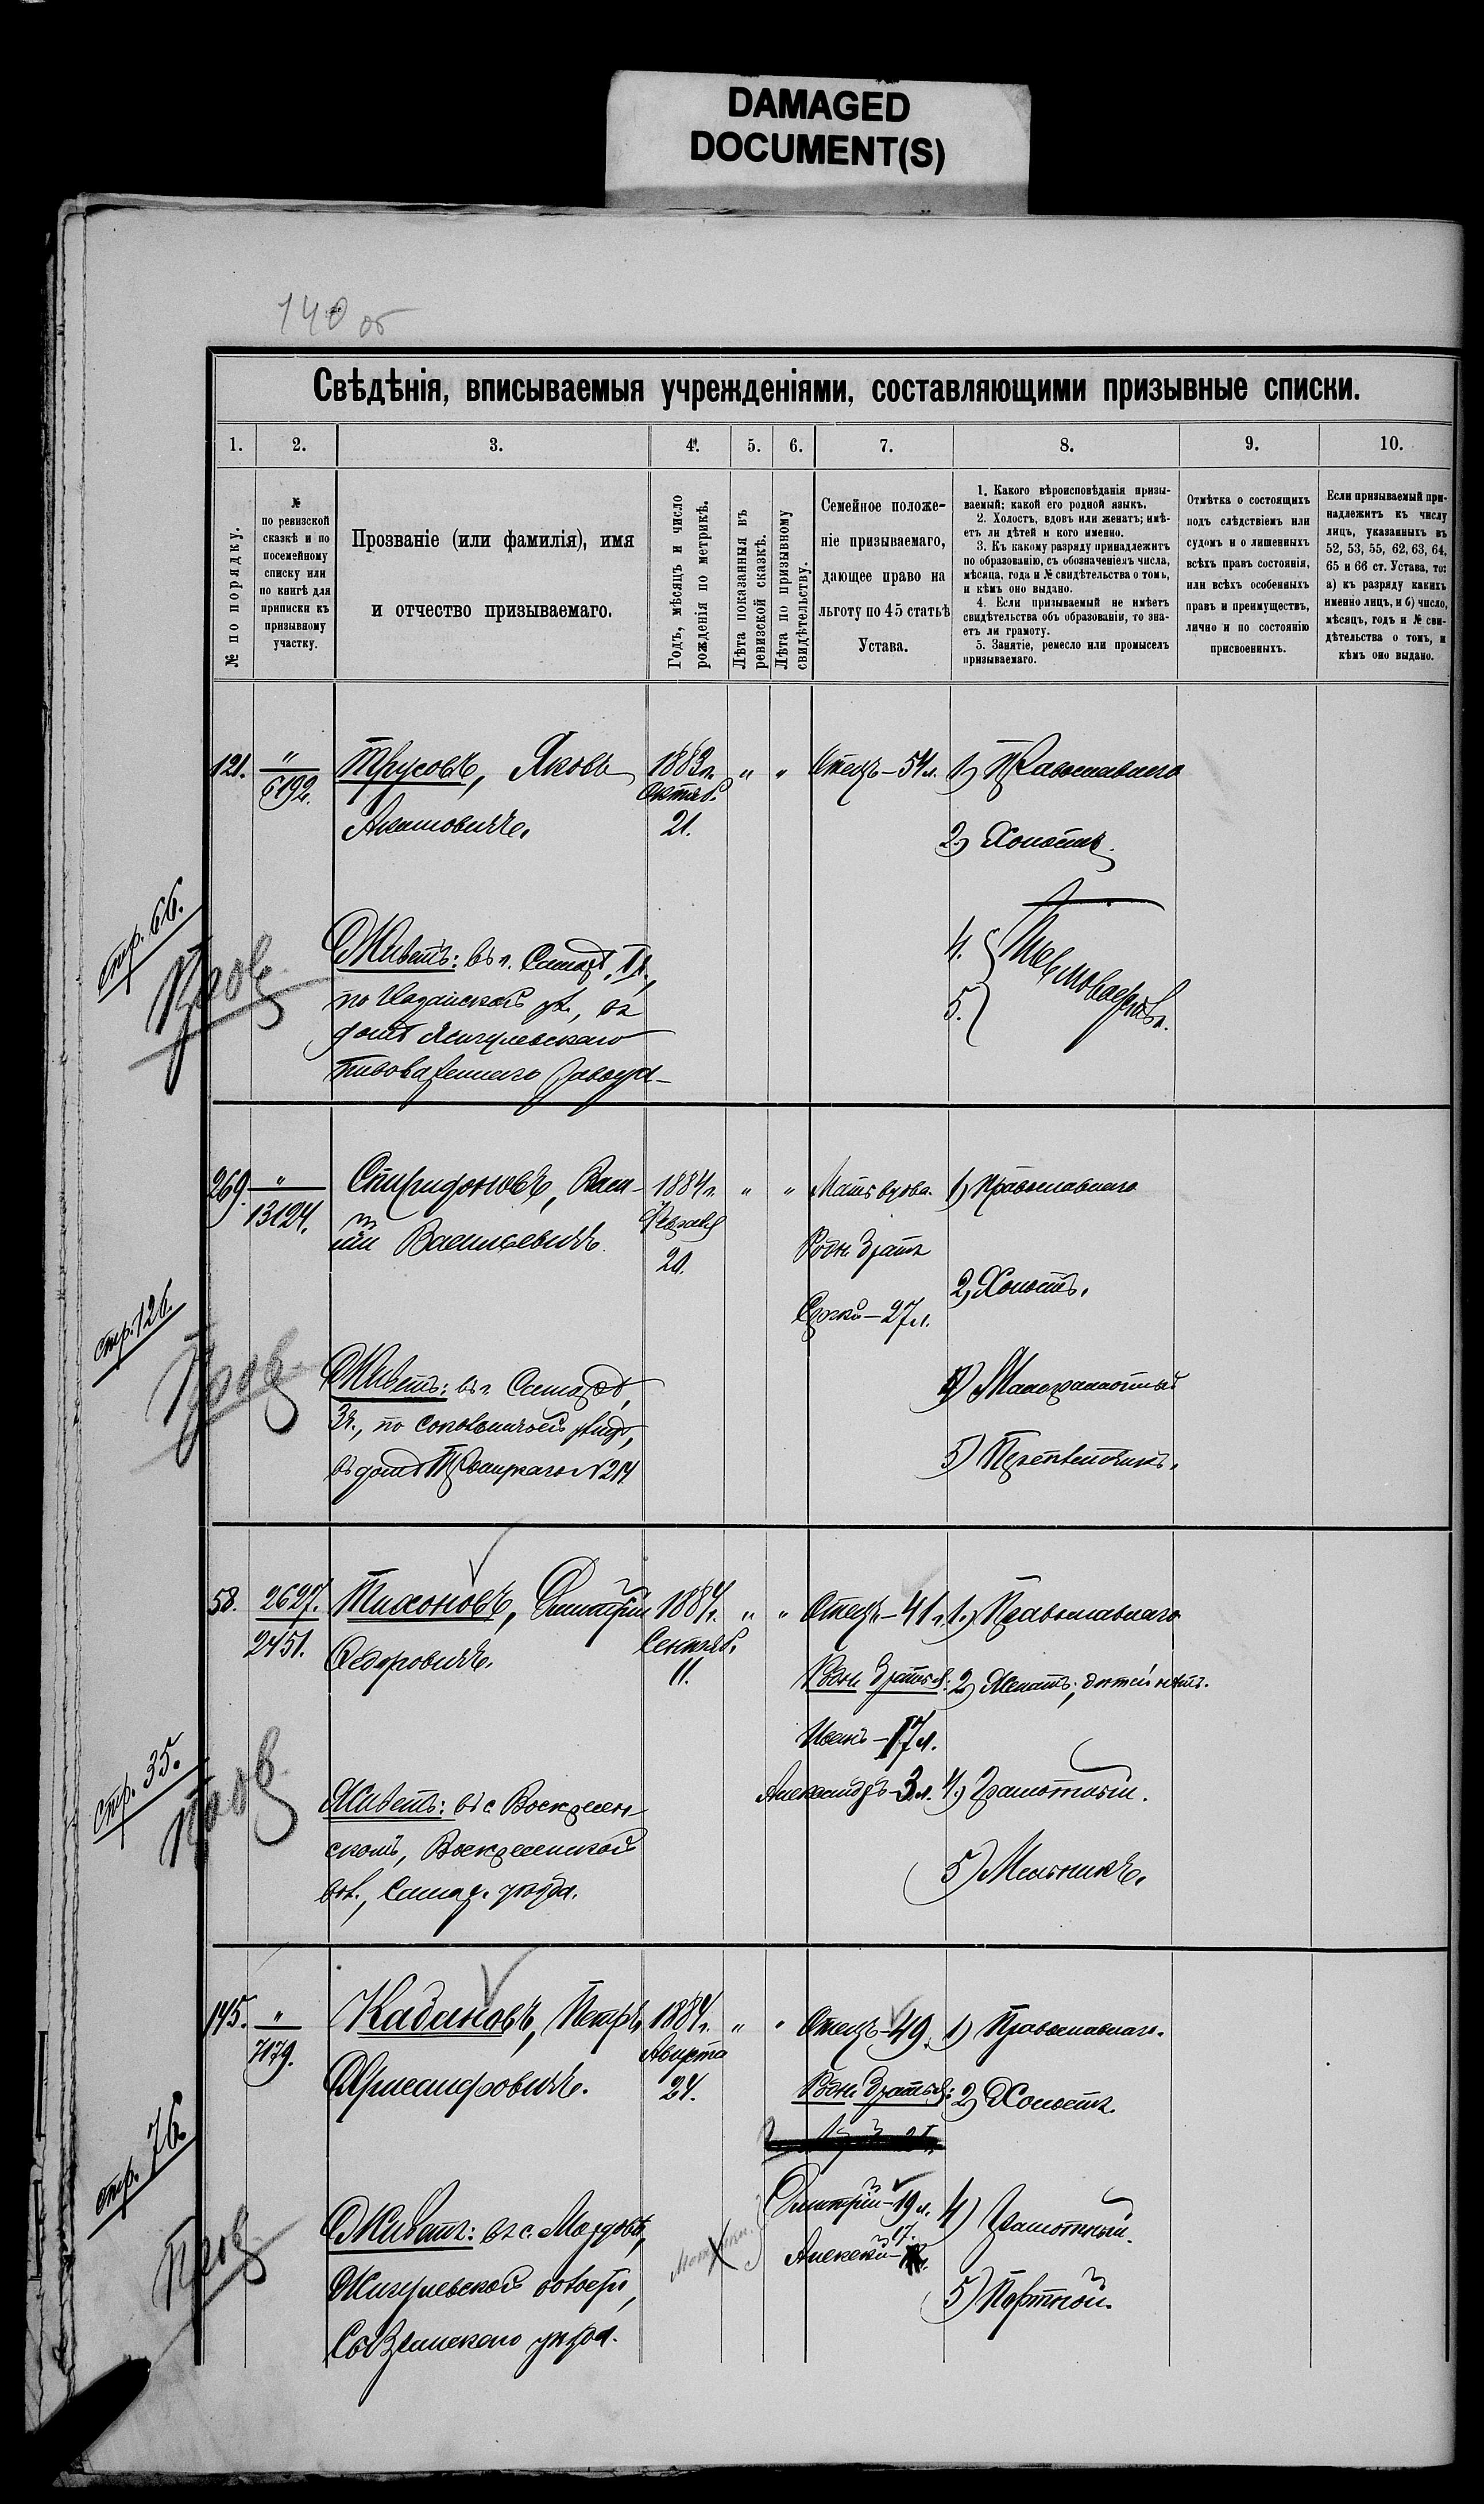 DAMAGED
DOCUMENT(S)
140 об
Свѣдѣнія, вписываемыя учрежденіями, составляющими призывные списки.
1. 2. 3. 4. 5. 6. 7. 8. 9. 10.
№ по порядку.
№
по ревизской
сказкѣ и по
посемейному
списку или
по книгѣ для
приписки къ
призывному
участку.
Прозваніе (или фамилія), имя
и отчество призываемаго.
Годъ, мѣсяцъ и число
рожденія по метрикѣ.
Лѣта показанныя въ
ревизской сказкѣ.
Лѣта по призывному
свидѣтельству.
Семейное положе-
ніе призываемаго,
дающее право на
льготу по 45 статьѣ
Устава.
1. Какого вѣроисповѣданія призы-
ваемый; какой его родной языкъ.
2. Холостъ, вдовъ или женатъ; имѣ-
етъ ли дѣтей и кого именно.
3. Къ какому разряду принадлежитъ
по образованію, съ обозначеніемъ числа,
мѣсяца, года и № свидѣтельства о томъ,
и кѣмъ оно выдано.
4. Если призываемый не имѣетъ
свидѣтельства объ образованіи, то зна-
етъ ли грамоту.
5. Занятіе, ремесло или промыселъ
призываемаго.
Отмѣтка о состоящихъ
подъ слѣдствіемъ или
судомъ и о лишенныхъ
всѣхъ правъ состоянія,
или всѣхъ особенныхъ
правъ и преимуществъ,
лично и по состоянію
присвоенныхъ.
Если призываемый при-
надлежитъ къ числу
лицъ, указанныхъ въ
52, 53, 55, 62, 63, 64,
65 и 66 ст. Устава, то:
а) къ разряду какихъ
именно лицъ, и б) число,
мѣсяцъ, годъ и № сви-
дѣтельства о томъ, и
кѣмъ оно выдано.
121. " Трусовъ, Яковъ 1883г. " " Отецъ-54л. 1) Православнаго
6192. Октяб.
21.
2) Холостъ.
стр. 66.
Пров
Живетъ: въ г. Самарѣ,
по Казанской ул., въ
домѣ Жигулевскаго
пивовареннаго завода
4.
5.
269. " Спиридоновъ, Васи- 1884г. " " Мать вдова. 1) Православнаго
13124. Февраля
лій Васильевичъ. 20.
Родн. братъ
Сергѣй-27л.
2) Холостъ.
стр. 126.
Пров
Живетъ: въ г. Самарѣ,
3ч., по Соколничьей улиц,
въ домѣ №214
4) Малограмотный
5) Переплетчикъ.
58. 2627. Тихоновъ, Дмитрій 1884г. " " Отецъ-41л. 1.) Православнаго
2451. Ѳедоровичъ. Сентяб.
11.
Родн. братья: 2) Женатъ; дѣтей нѣтъ.
Иванъ-17л.
Александръ-3л. 4.) Грамотный.
стр. 35.
Пров
Живетъ: въ с. Воскресен-
скомъ, Воскресенской
вол., Самар. уѣзда.
5) Мельникъ.
145. " Кадановъ, Петръ 1884г. " " Отецъ-49. 1) Православнаго.
7179. Августа
Александровичъ. 24.
Родн. братья: 2) Холостъ.
Дмитрій-19л.
Алексѣй- 17.
4) Грамотный.
стр. 76.
Пров
Живетъ: въ с. Мордовѣ,
Жигулевской волости,
Сызранскаго уѣзда.
5) Портной.